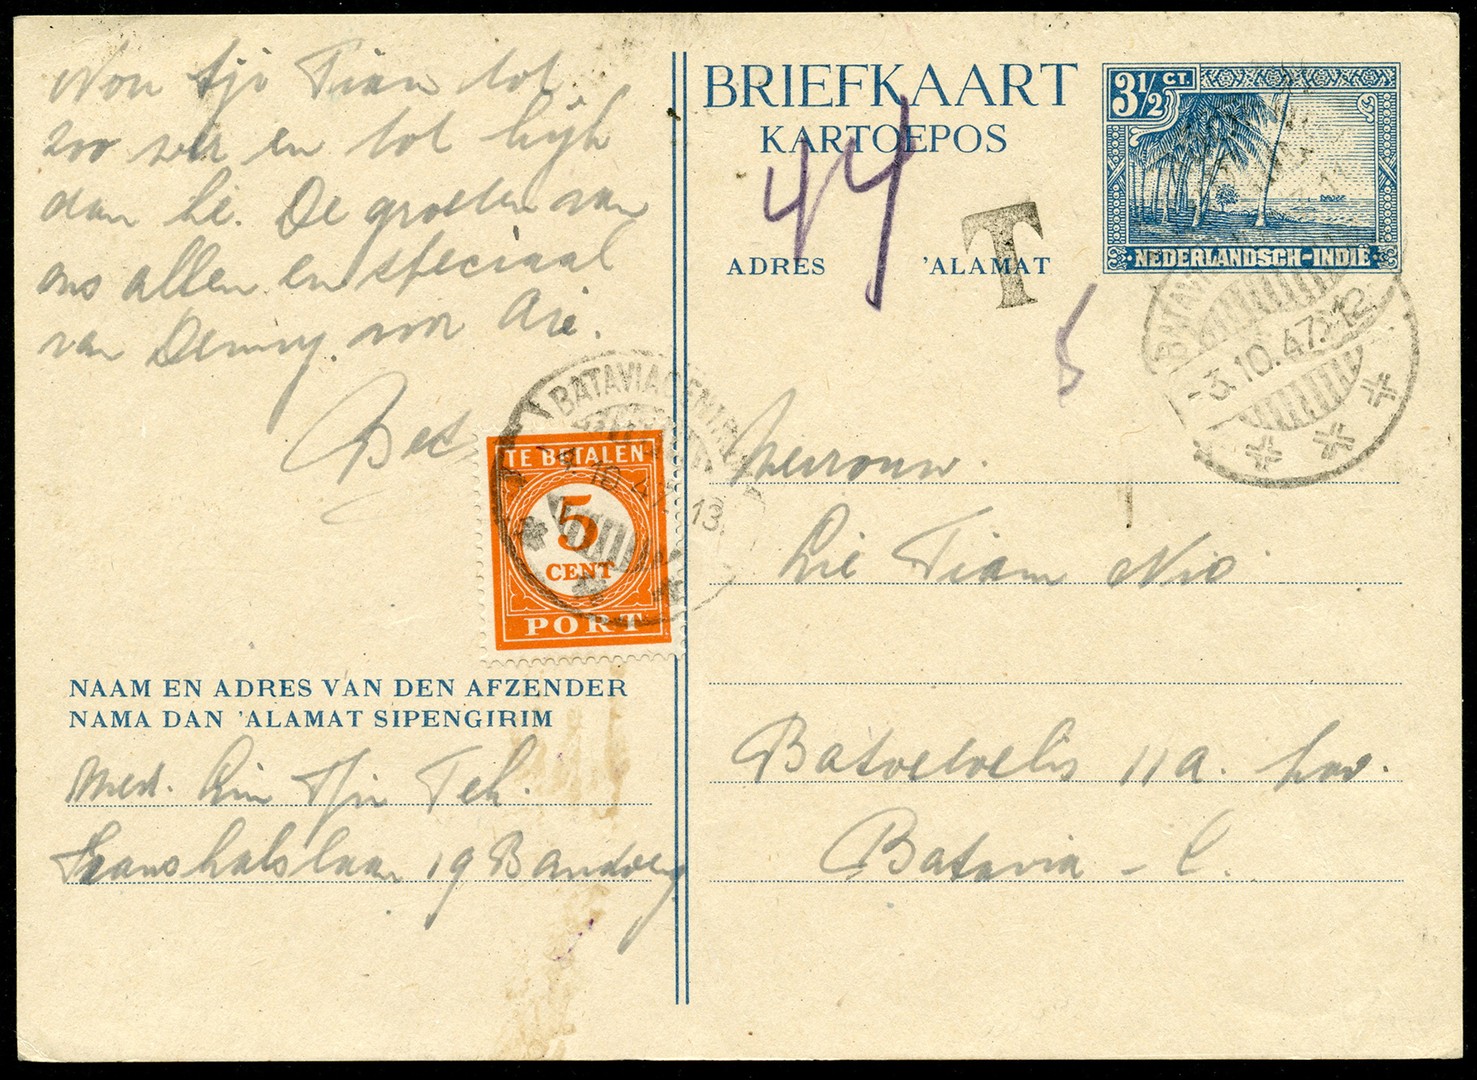 Nou tjo Tian tot
zoo ver en tot kijk
dan he. De groeten van
ons allen en speciaal
van Denny voor Arie.
Bet
BRIEFKAART
KARTOEPOS
3½ CT.
NEDERLANDSCH-INDIË
44
T
ADRES 'ALAMAT
5
BATAVIA
-3.10.47.-12
BATAVIACENTRUM
10.47.13
TE BETALEN
5
CENT
PORT
Mevrouw.
Lie Tiam Nio
Batoetoelis 11a. pav.
Batavia - C.
NAAM EN ADRES VAN DEN AFZENDER
NAMA DAN 'ALAMAT SIPENGIRIM
Mevr. Lim Tjin Teh.
Franshalslaan 19 Bandoeng